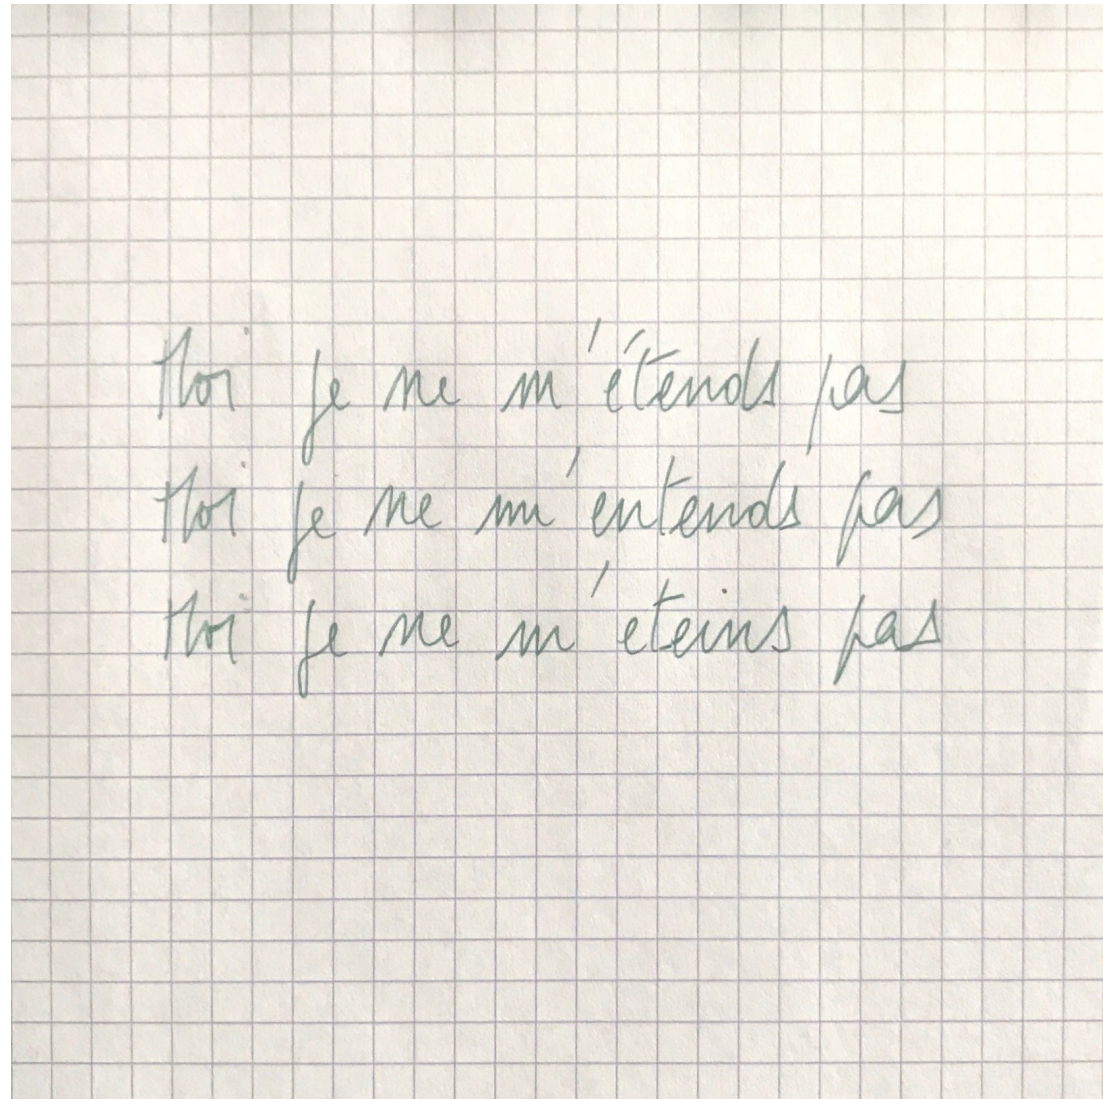 Moi je ne m'étends pas
Moi je ne m'entends pas
Moi je ne m'eteins pas